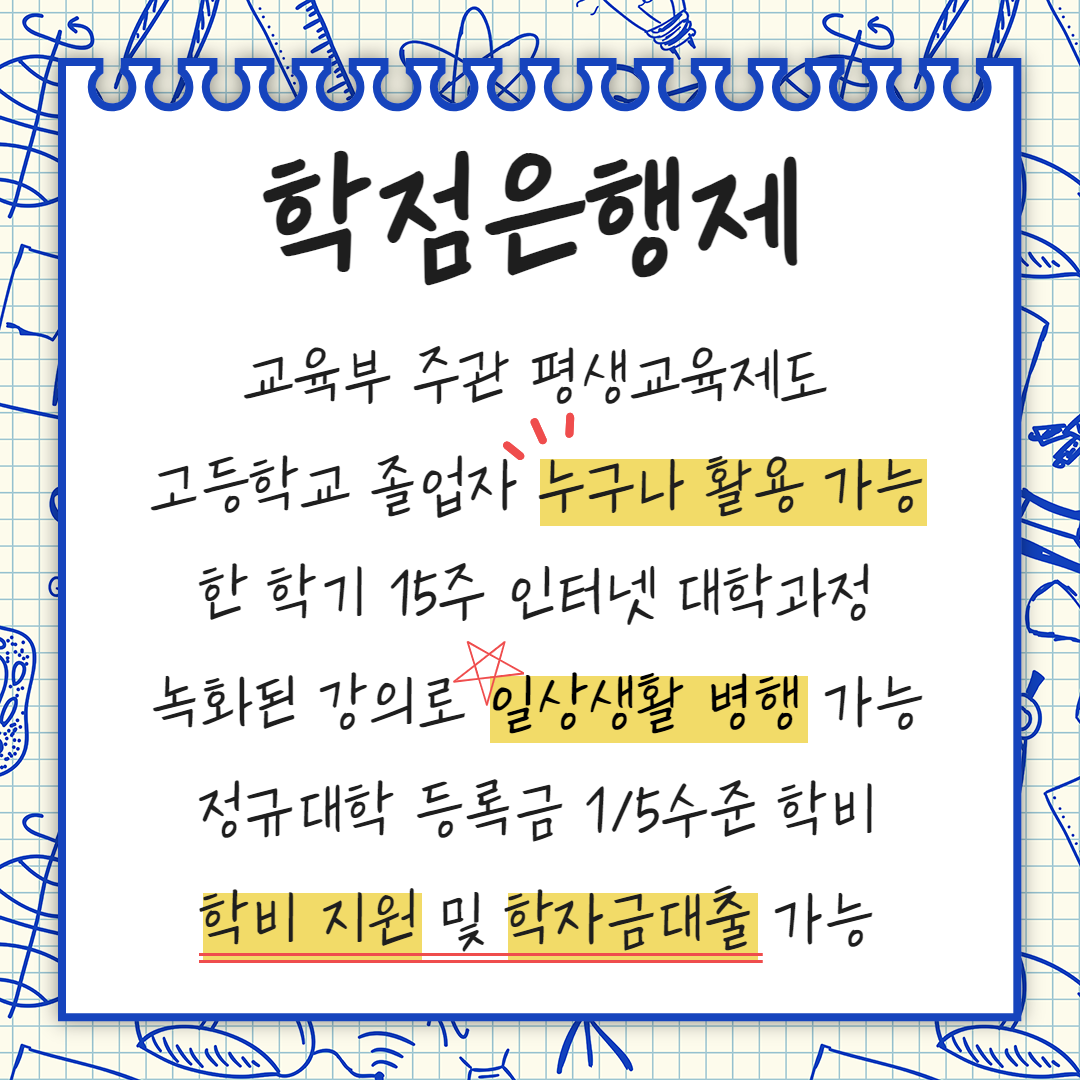 학점은행제
교육부 주관 평생교육제도
고등학교 졸업자 누구나 활용 가능
한 학기 15주 인터넷 대학과정
녹화된 강의로 일상생활 병행 가능
정규대학 등록금 1/5수준 학비
학비 지원 및 학자금대출 가능